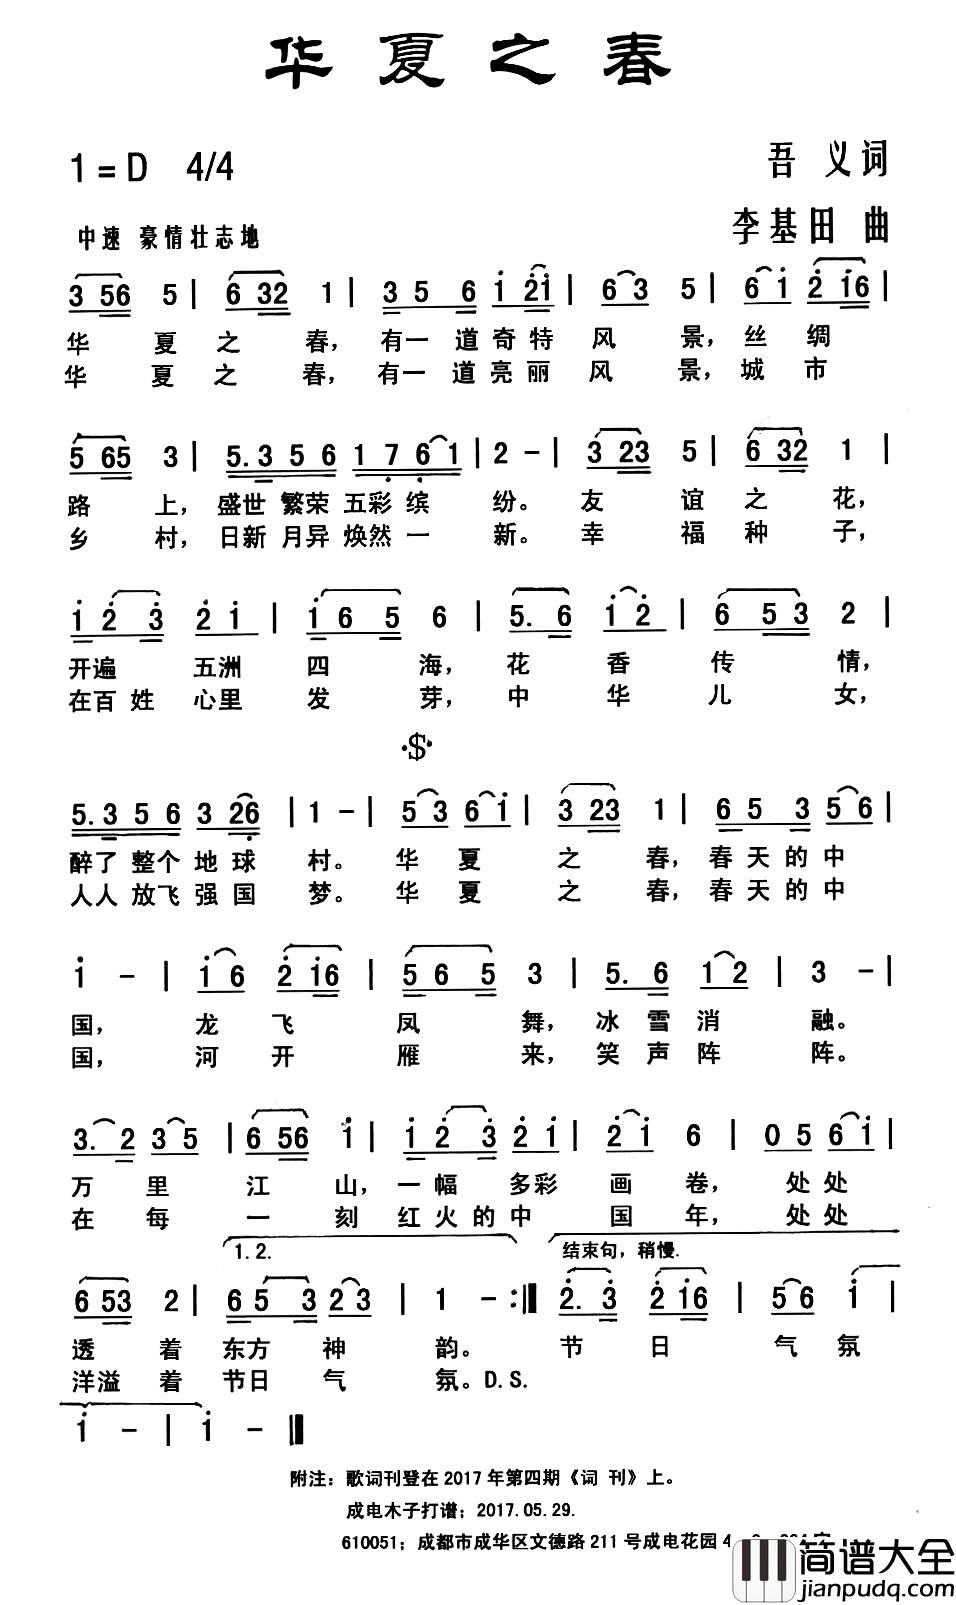 华夏之春
1=D 4/4
吾 义词
李基田 曲
中速 豪情壮志地
3 56 5 | 6 32 1 | 3 5 6 i 2i | 6 3 5 | 6 i 2 i6 |
华 夏 之 春，有一 道奇特 风 景，丝 绸
华 夏 之 春，有一 道亮丽 风 景，城 市
5 65 3 | 5.3 5 6 1 7 6 1 | 2 - | 3 23 5 | 6 32 1 |
路 上，盛世 繁荣 五彩 缤 纷。友 谊 之 花，
乡 村，日新 月异 焕然 一 新。幸 福 种 子，
i 2 3 2 i | i 6 5 6 | 5. 6 i 2 | 6 5 3 2 |
开遍 五洲 四 海，花 香 传 情，
在百 姓 心里 发 芽，中 华 儿 女，
5.3 5 6 3 26 | 1 - | 5 3 6 i | 3 23 1 | 6 5 3 5 6 |
醉了 整个 地 球 村。华 夏 之 春，春 天 的 中
人人 放飞 强 国 梦。华 夏 之 春，春 天 的 中
i - | i 6 2 i6 | 5 6 5 3 | 5. 6 1 2 | 3 - |
国，龙 飞 凤 舞，冰 雪 消 融。
国，河 开 雁 来，笑 声 阵 阵。
3. 2 3 5 | 6 56 i | i 2 3 2 i | 2 i 6 | 0 5 6 i |
万 里 江 山，一 幅 多彩 画 卷，处 处
在 每 一 刻 红 火 的 中 国 年，处 处
1. 2. 结束句，稍慢.
6 53 2 | 6 5 3 2 3 | 1 - :‖ 2. 3 2 i6 | 5 6 i |
透 着 东方 神 韵。节 日 气 氛
洋溢 着 节日 气 氛。D.S.
i - | i - ‖
附注：歌词刊登在2017年第四期《词 刊》上。
成电木子打谱；2017.05.29.
610051；成都市成华区文德路211号成电花园4
简谱大全
jianpudq.com